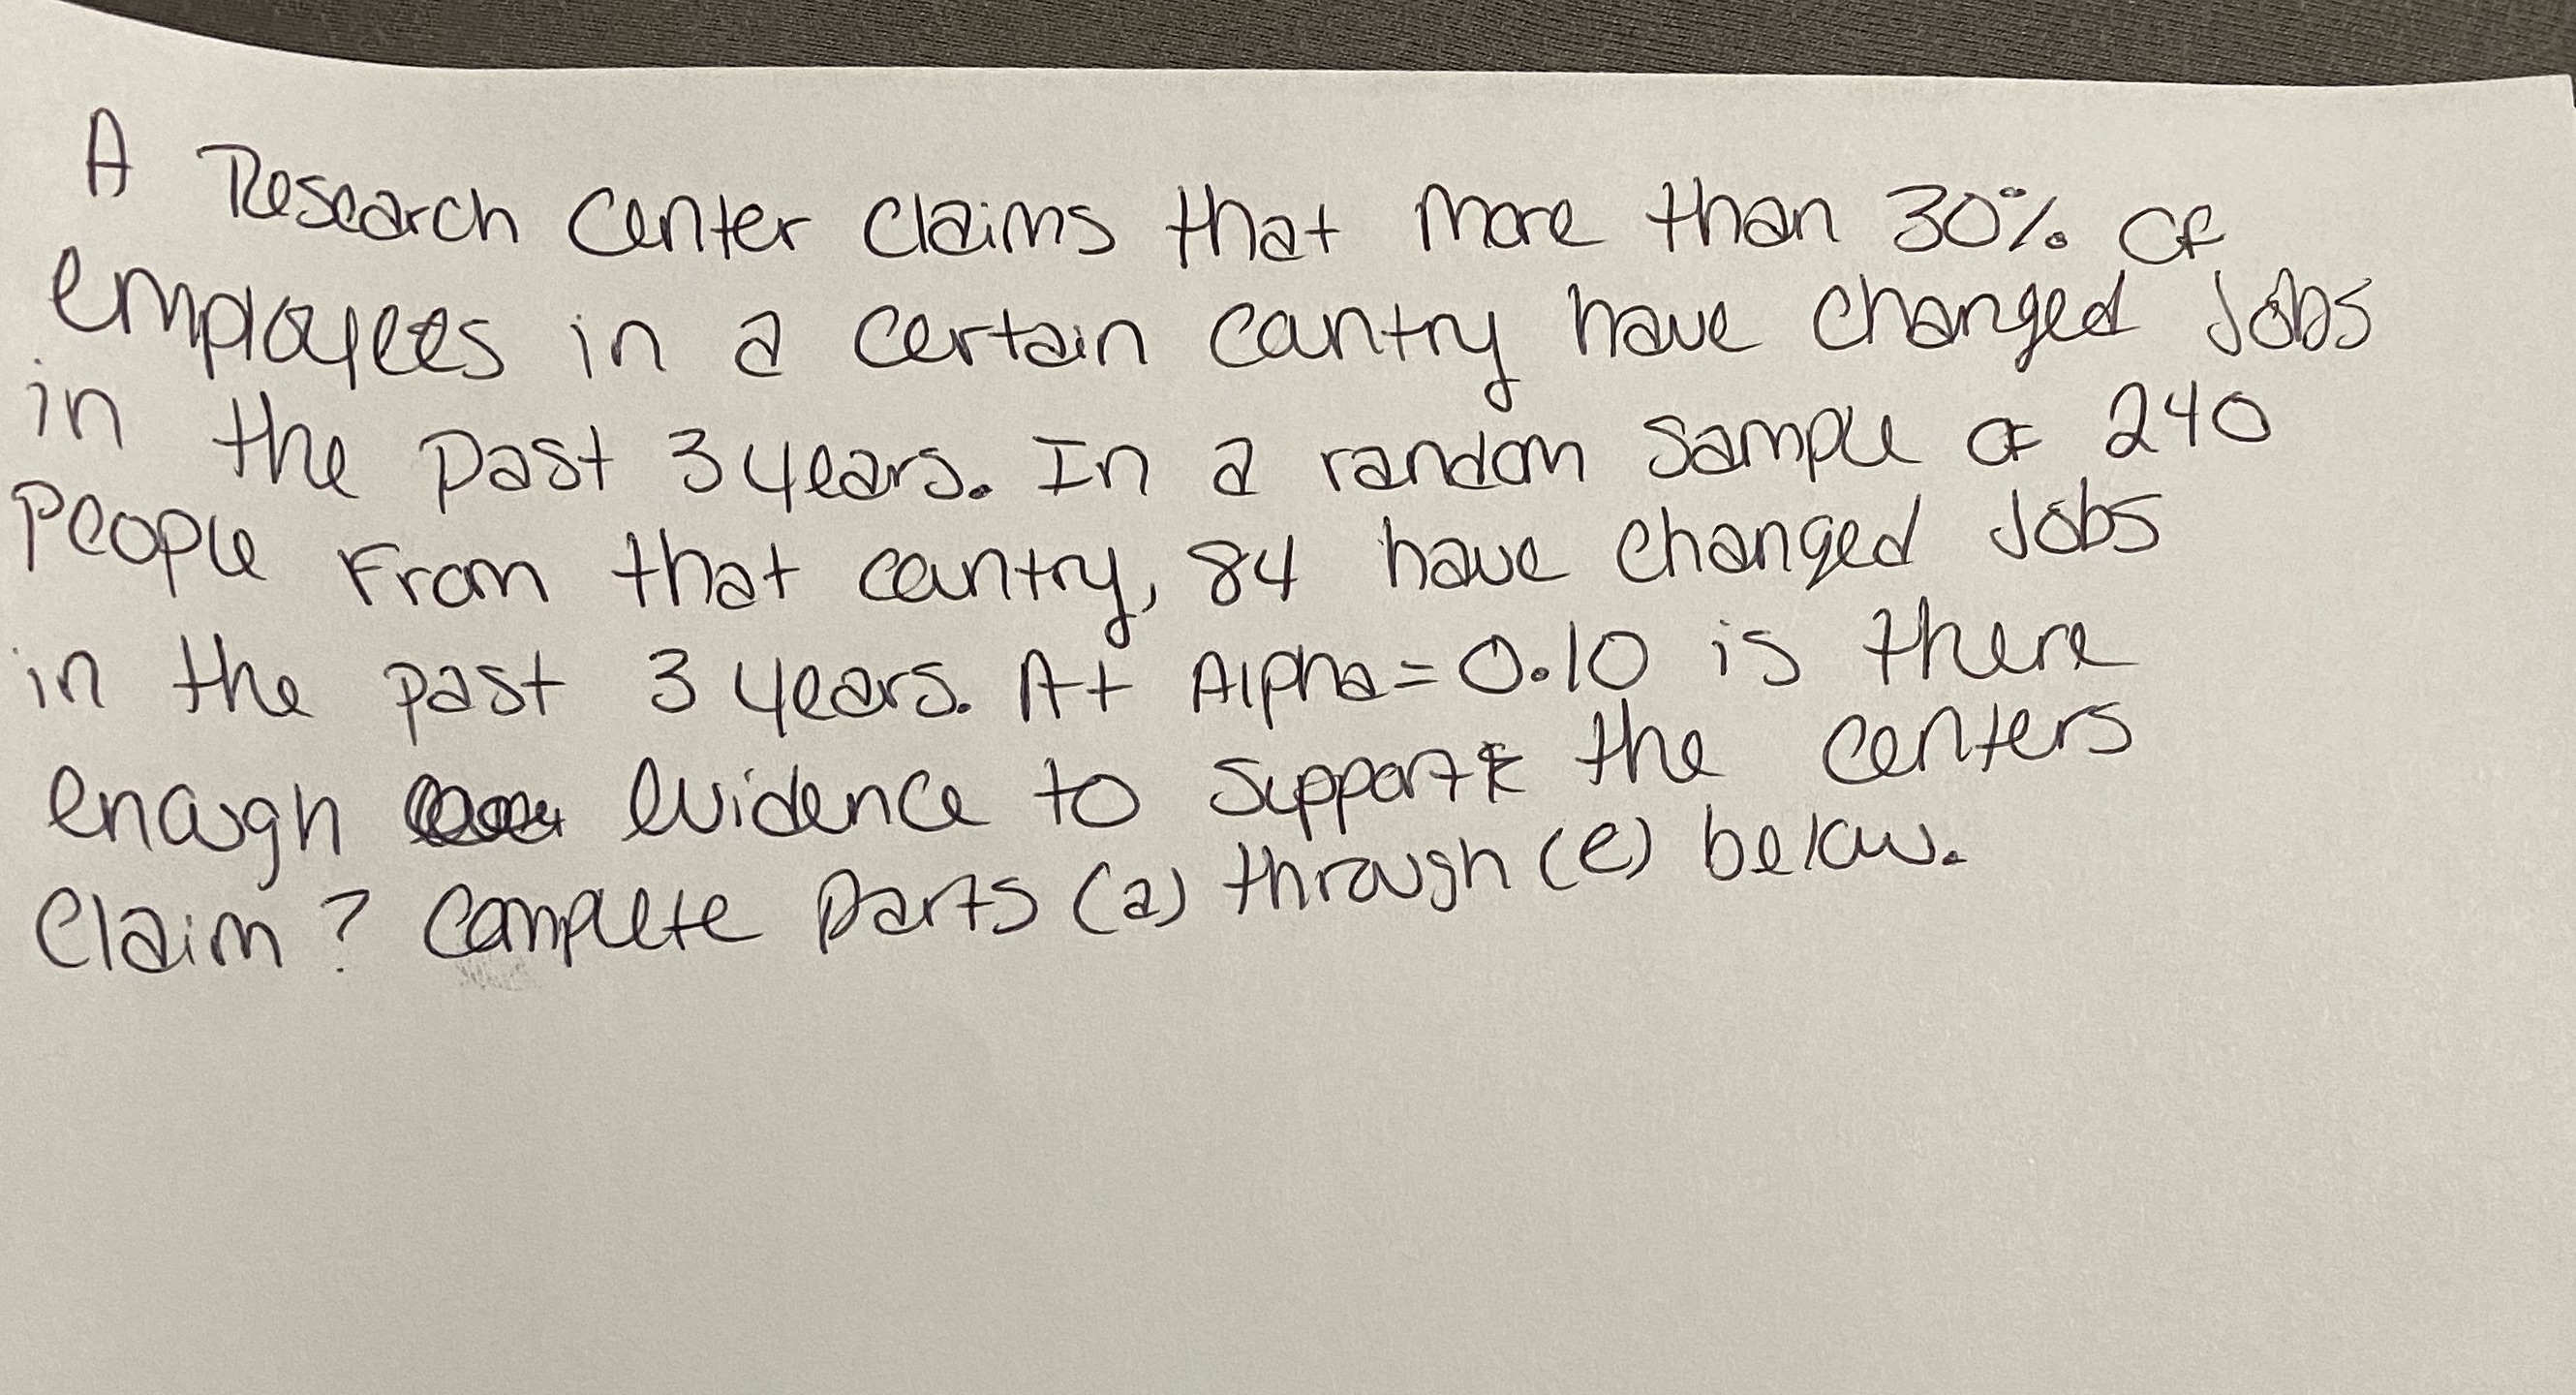 A Research Center claims that more than 30% of
employees in a certain country have changed jobs
in the past 3 years. In a random sample of 240
people from that country, 84 have changed jobs
in the past 3 years. At Alpha = 0.10 is there
enough evidence to support the centers
claim? Complete parts (a) through (e) below.